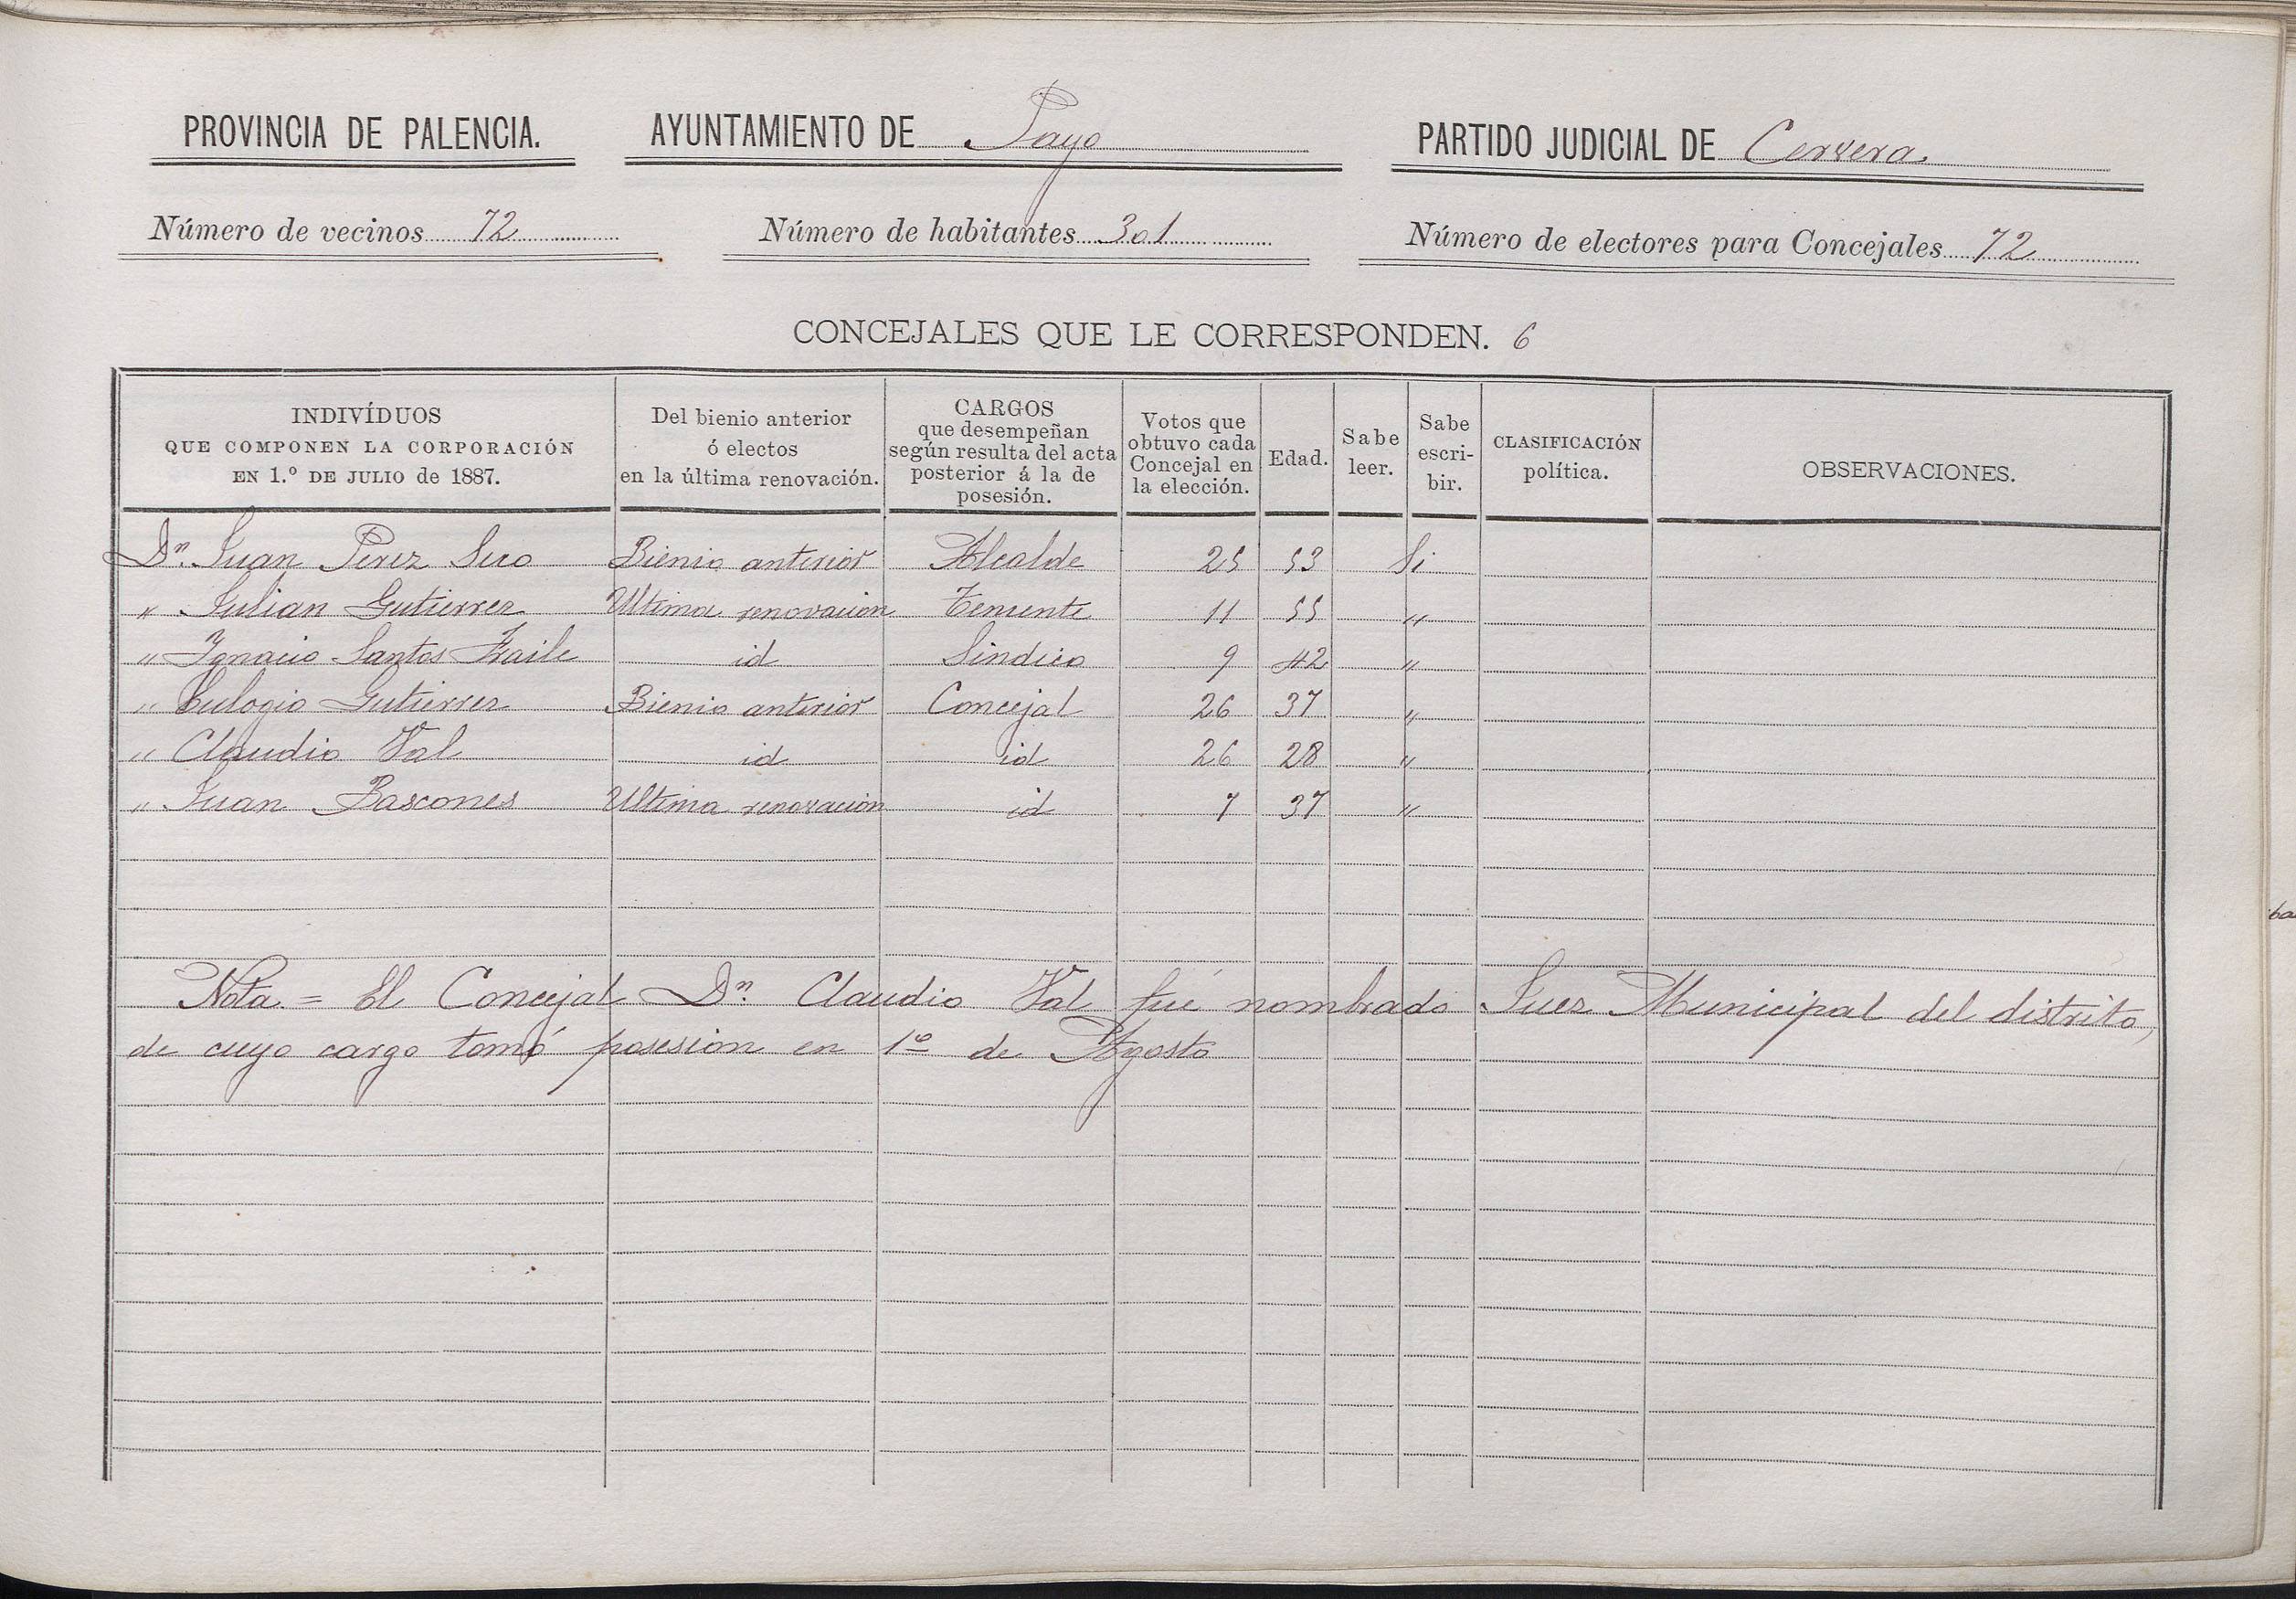 PROVINCIA DE PALENCIA. AYUNTAMIENTO DE Payo PARTIDO JUDICIAL DE Cervera
Número de vecinos 72 Número de habitantes 301 Número de electores para Concejales 72
CONCEJALES QUE LE CORRESPONDEN. 6
INDIVÍDUOS QUE COMPONEN LA CORPORACIÓN EN 1.º DE JULIO de 1887. Del bienio anterior ó electos en la última renovación. CARGOS que desempeñan según resulta del acta posterior á la de posesión. Votos que obtuvo cada Concejal en la elección. Edad. Sabe leer. Sabe escri-bir. CLASIFICACIÓN política. OBSERVACIONES.
Dn. Juan Perez Seco Bienio anterior Alcalde 25 53 Si
" Julian Gutierrez Ultima renovacion Teniente 11 55 "
" Ygnacio Santos Fraile id Sindico 9 42 "
" Eulogio Gutierrez Bienio anterior Concejal 26 37 "
" Claudio Val id id 26 28 "
" Juan Bascones Ultima renovacion id 7 37 "
Nota = El Concejal Dn. Claudio Val fué nombrado Juez Municipal del distrito,
de cuyo cargo tomó posesion en 1º de Agosto